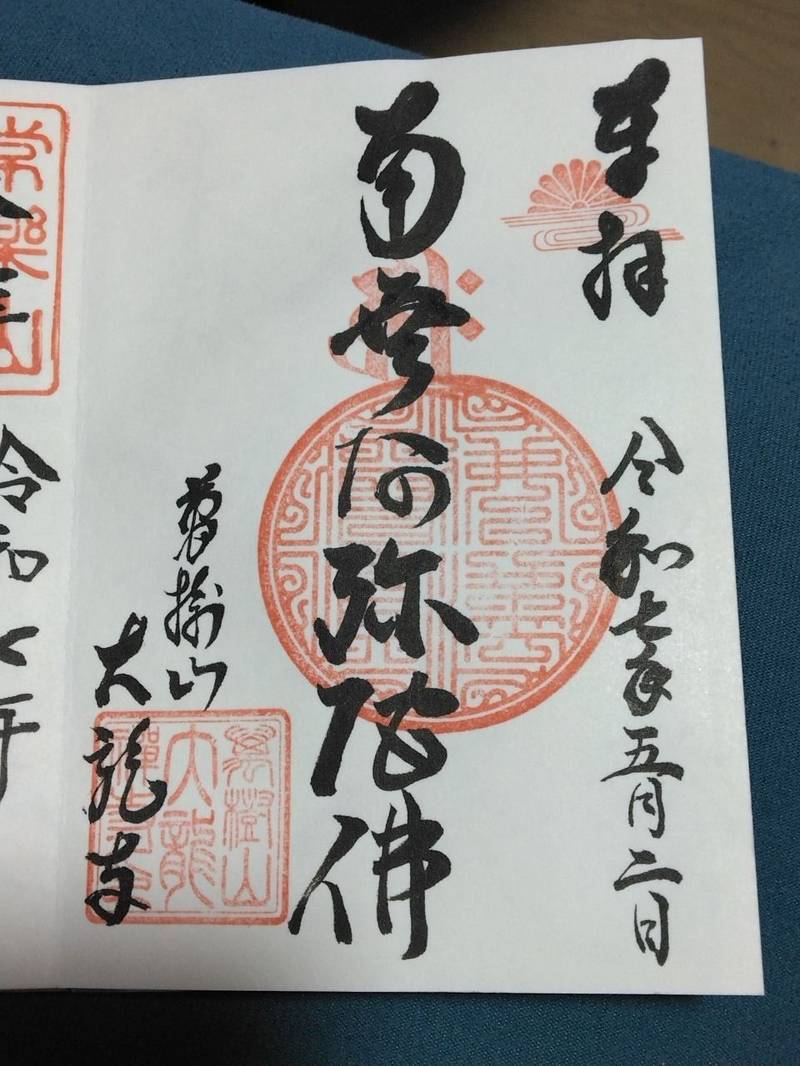 奉拝
令和七年五月二日
南無阿弥陀佛
萬樹山
大龍寺
萬樹山
大龍
常樂山
令和七年